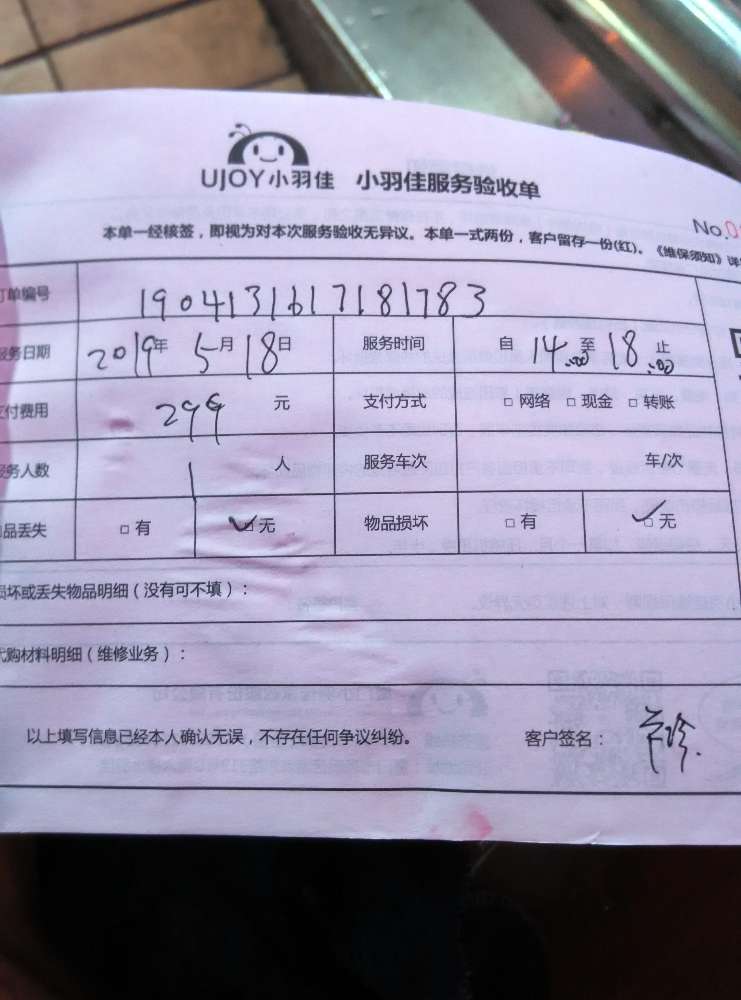 UJOY小羽佳 小羽佳服务验收单
No.0
本单一经核签，即视为对本次服务验收无异议。本单一式两份，客户留存一份(红)。《维保须知》详
订单编号 1904131617181783
服务日期 2019年 5月 18日 服务时间 自 14:00 至 18:00 止
支付费用 299 元 支付方式 □ 网络 □ 现金 □ 转账
服务人数 1 人 服务车次 车/次
物品丢失 □ 有 ✓□ 无 物品损坏 □ 有 ✓□ 无
损坏或丢失物品明细（没有可不填）：
代购材料明细（维修业务）：
以上填写信息已经本人确认无误，不存在任何争议纠纷。 客户签名：